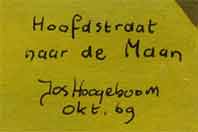 Hoofdstraat
naar de Maan
Jos Hoogeboom
Okt. 69